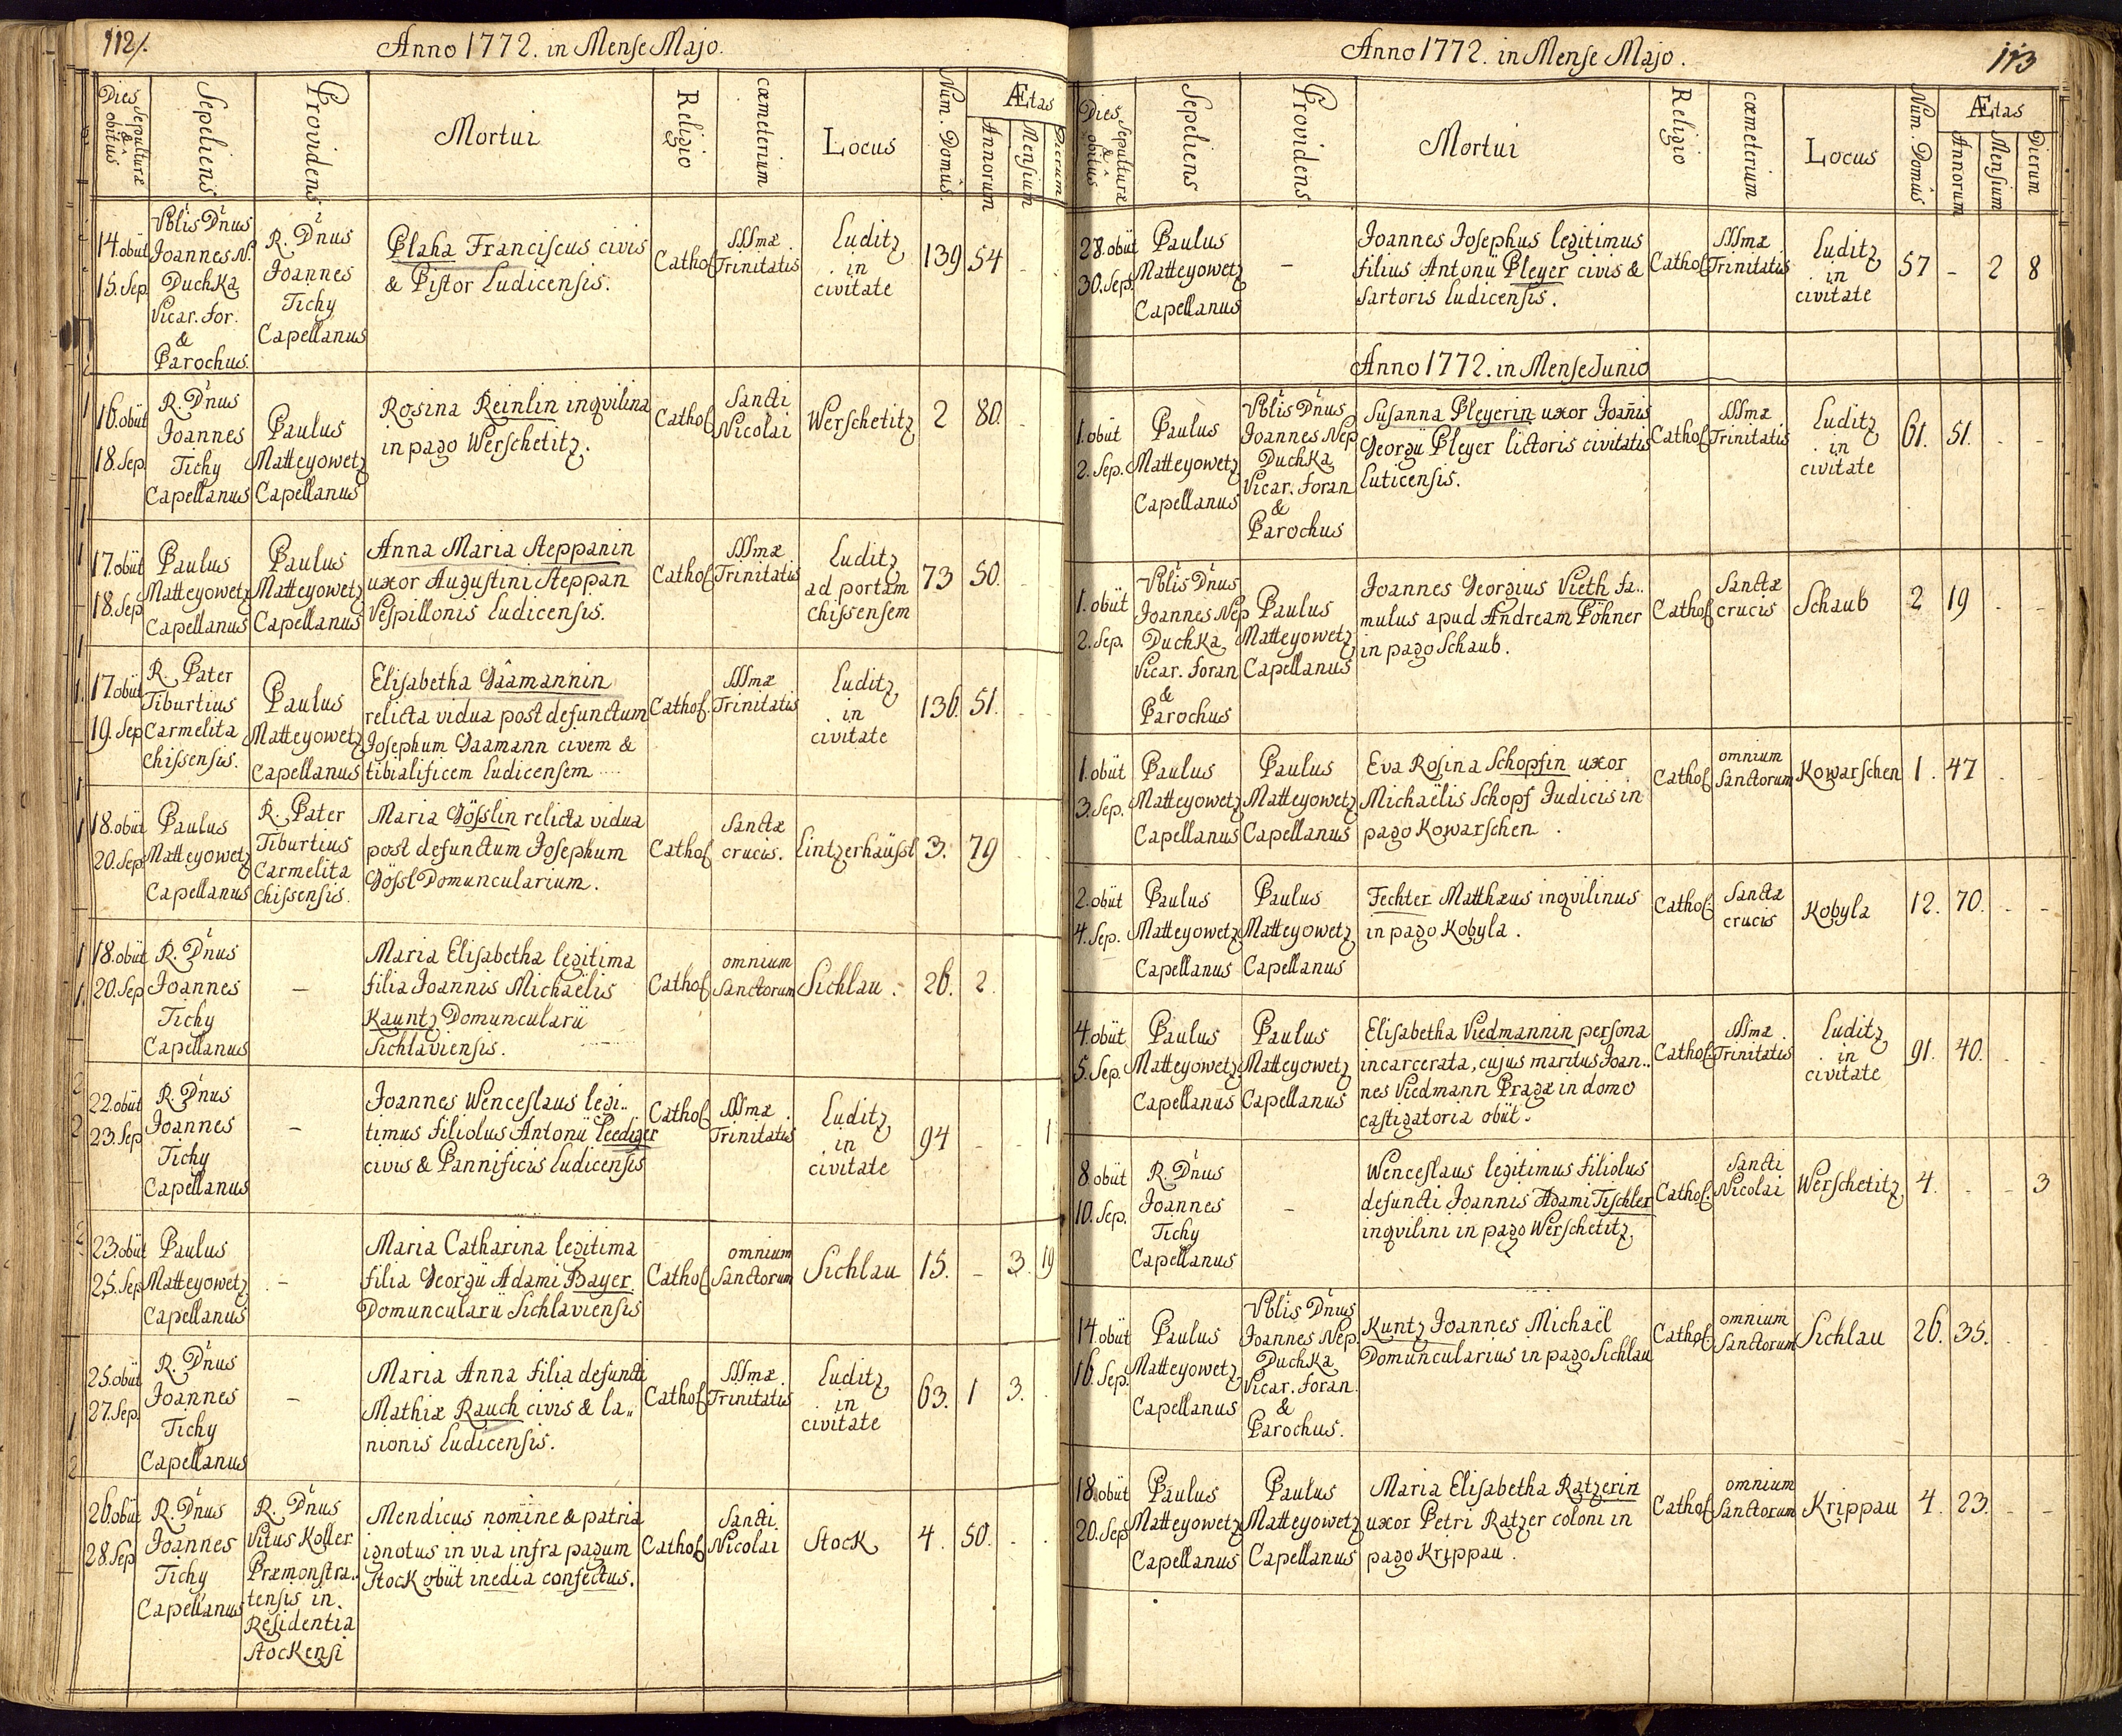 112/.
Anno 1772. in Mense Majo.
Dies Sepulturæ & obitus
Sepeliens
Providens
Mortui
Religio
cœmeterium
Locus
Num. Domûs
Ætas
Annorum
Mensium
Dierum
14. obiit
15. Sep.
Vblis Dnus
Joannes N.
Duchka
Vicar. For.
&
Parochus.
R. Dnus
Joannes
Tichy
Capellanus
Blaha Franciscus civis
& Pistor Ludicensis.
Cathol
SSSmæ
Trinitatis
Luditz
in
civitate
139
54
16. obiit
18. Sep.
R. Dnus
Joannes
Tichy
Capellanus
Paulus
Matteyowetz
Capellanus
Rosina Reinlin inqvilina
in pago Werschetitz.
Cathol
Sancti
Nicolai
Werschetitz
2
80.
17. obiit
18. Sep
Paulus
Matteyowetz
Capellanus
Paulus
Matteyowetz
Capellanus
Anna Maria Steppanin
uxor Augustini Steppan
Vespillonis Ludicensis.
Cathol
SSSmæ
Trinitatis
Luditz
ad portam
chissensem
73
50.
17. obiit
19. Sep
R. Pater
Tiburtius
Carmelita
chissensis.
Paulus
Matteyowetz
Capellanus
Elisabetha Gâamannin
relicta vidua post defunctum
Josephum Gaamann civem &
tibialificem Ludicensem
Cathol.
SSSmæ
Trinitatis
Luditz
in
civitate
136.
51.
18. obiit
20. Sep.
Paulus
Matteyowetz
Capellanus
R. Pater
Tiburtius
Carmelita
Chissensis.
Maria Gösslin relicta vidua
post defunctum Josephum
Gössl Domuncularium.
Cathol
Sanctæ
crucis.
Lintzerhäussl
3.
79
18. obiit
20. Sep
R. Dnus
Joannes
Tichy
Capellanus
–
Maria Elisabetha legitima
filia Joannis Michaëlis
Kauntz Domuncularii
Sichlaviensis.
Cathol
omnium
Sanctorum
Sichlau.
26.
2.
22. obiit
23. Sep
R. Dnus
Joannes
Tichy
Capellanus
–
Joannes Wenceslaus legi..
timus filiolus Antonii Leediger
civis & Pannificis Ludicensis
Cathol
SSSmæ
Trinitatis
Luditz
in
civitate
94
–
1
23. obiit
25. Sep
Paulus
Matteyowetz
Capellanus
–
Maria Catharina legitima
filia Georgii Adami Bayer
Domuncularii Sichlaviensis
Cathol
omnium
Sanctorum
Sichlau
15.
–
3.
19
25. obiit
27. Sep.
R. Dnus
Joannes
Tichy
Capellanus
–
Maria Anna filia defuncti
Mathiæ Rauch civis & la..
nionis Ludicensis.
Cathol
SSSmæ
Trinitatis
Luditz
in
civitate
63.
1
3.
26. obiit
28. Sep
R. Dnus
Joannes
Tichy
Capellanus
R. Dnus
Vitus Koller
Præmonstra..
tensis in
Residentia
Stockensi
Mendicus nomine & patria
ignotus in via infra pagum
Stock obiit inedia confectus.
Cathol
Sancti
Nicolai
Stock
4.
50.
113
Anno 1772. in Mense Majo.
Dies Sepulturæ & obitus
Sepeliens
Providens
Mortui
Religio
cœmeterium
Locus
Num. Domûs
Ætas
Annorum
Mensium
Dierum
28. obiit
30. Sep.
Paulus
Matteyowetz
Capellanus
–
Joannes Josephus legitimus
filius Antonii Pleyer civis &
sartoris Ludicensis.
Cathol
SSSmæ
Trinitatis
Luditz
in
civitate
57
–
2
8
Anno 1772. in Mense Junio
1. obiit
2. Sep.
Paulus
Matteyowetz
Capellanus
Vblis Dnus
Joannes Nep
Duchka
Vicar. Foran
&
Parochus
Susanna Pleyerin uxor Joañis
Georgii Pleyer lictoris civitatis
Luticensis.
Cathol
SSSmæ
Trinitatis
Luditz
in
civitate
61.
51.
1. obiit
2. Sep.
Vblis Dnus
Joannes Nep
Duchka
Vicar. Foran
&
Parochus
Paulus
Matteyowetz
Capellanus
Joannes Georgius Vieth fa..
mulus apud Andream Pöhner
in pago Schaub.
Cathol
Sanctæ
crucis
Schaub
2
19
1. obiit
3. Sep.
Paulus
Matteyowetz
Capellanus
Paulus
Matteyowetz
Capellanus
Eva Rosina Schopfin uxor
Michaëlis Schopf Judicis in
pago Kowarschen.
Cathol
omnium
Sanctorum
Kowarschen
1.
47
2. obiit
4. Sep.
Paulus
Matteyowetz
Capellanus
Paulus
Matteyowetz
Capellanus
Fechter Matthæus inqvilinus
in pago Kobyla.
Cathol.
Sanctæ
crucis
Kobyla
12.
70.
4. obiit
5. Sep.
Paulus
Matteyowetz
Capellanus
Paulus
Matteyowetz
Capellanus
Elisabetha Viedmannin persona
incarcerata, cujus maritus Joan..
nes Viedmann Pragæ in domo
castigatoria obiit.
Cathol.
SSSmæ
Trinitatis
Luditz
in
civitate
91.
40.
8. obiit
10. Sep.
R. Dnus
Joannes
Tichy
Capellanus
–
Wenceslaus legitimus filiolus
defuncti Joannis Adami Tischler
inqvilini in pago Werschetitz
Cathol.
Sancti
Nicolai
Werschetitz
4.
3
14. obiit
16. Sep.
Paulus
Matteyowetz
Capellanus
Vblis Dnus
Joannes Nep.
Duchka
Vicar. Foran.
&
Parochus.
Kuntz Joannes Michaël
Domuncularius in pago Sichlau
Cathol.
omnium
Sanctorum
Sichlau
26.
35.
18. obiit
20. Sep
Paulus
Matteyowetz
Capellanus
Paulus
Matteyowetz
Capellanus
Maria Elisabetha Ratzerin
uxor Petri Ratzer coloni in
pago Krippau.
Cathol
omnium
Sanctorum
Krippau
4.
23.